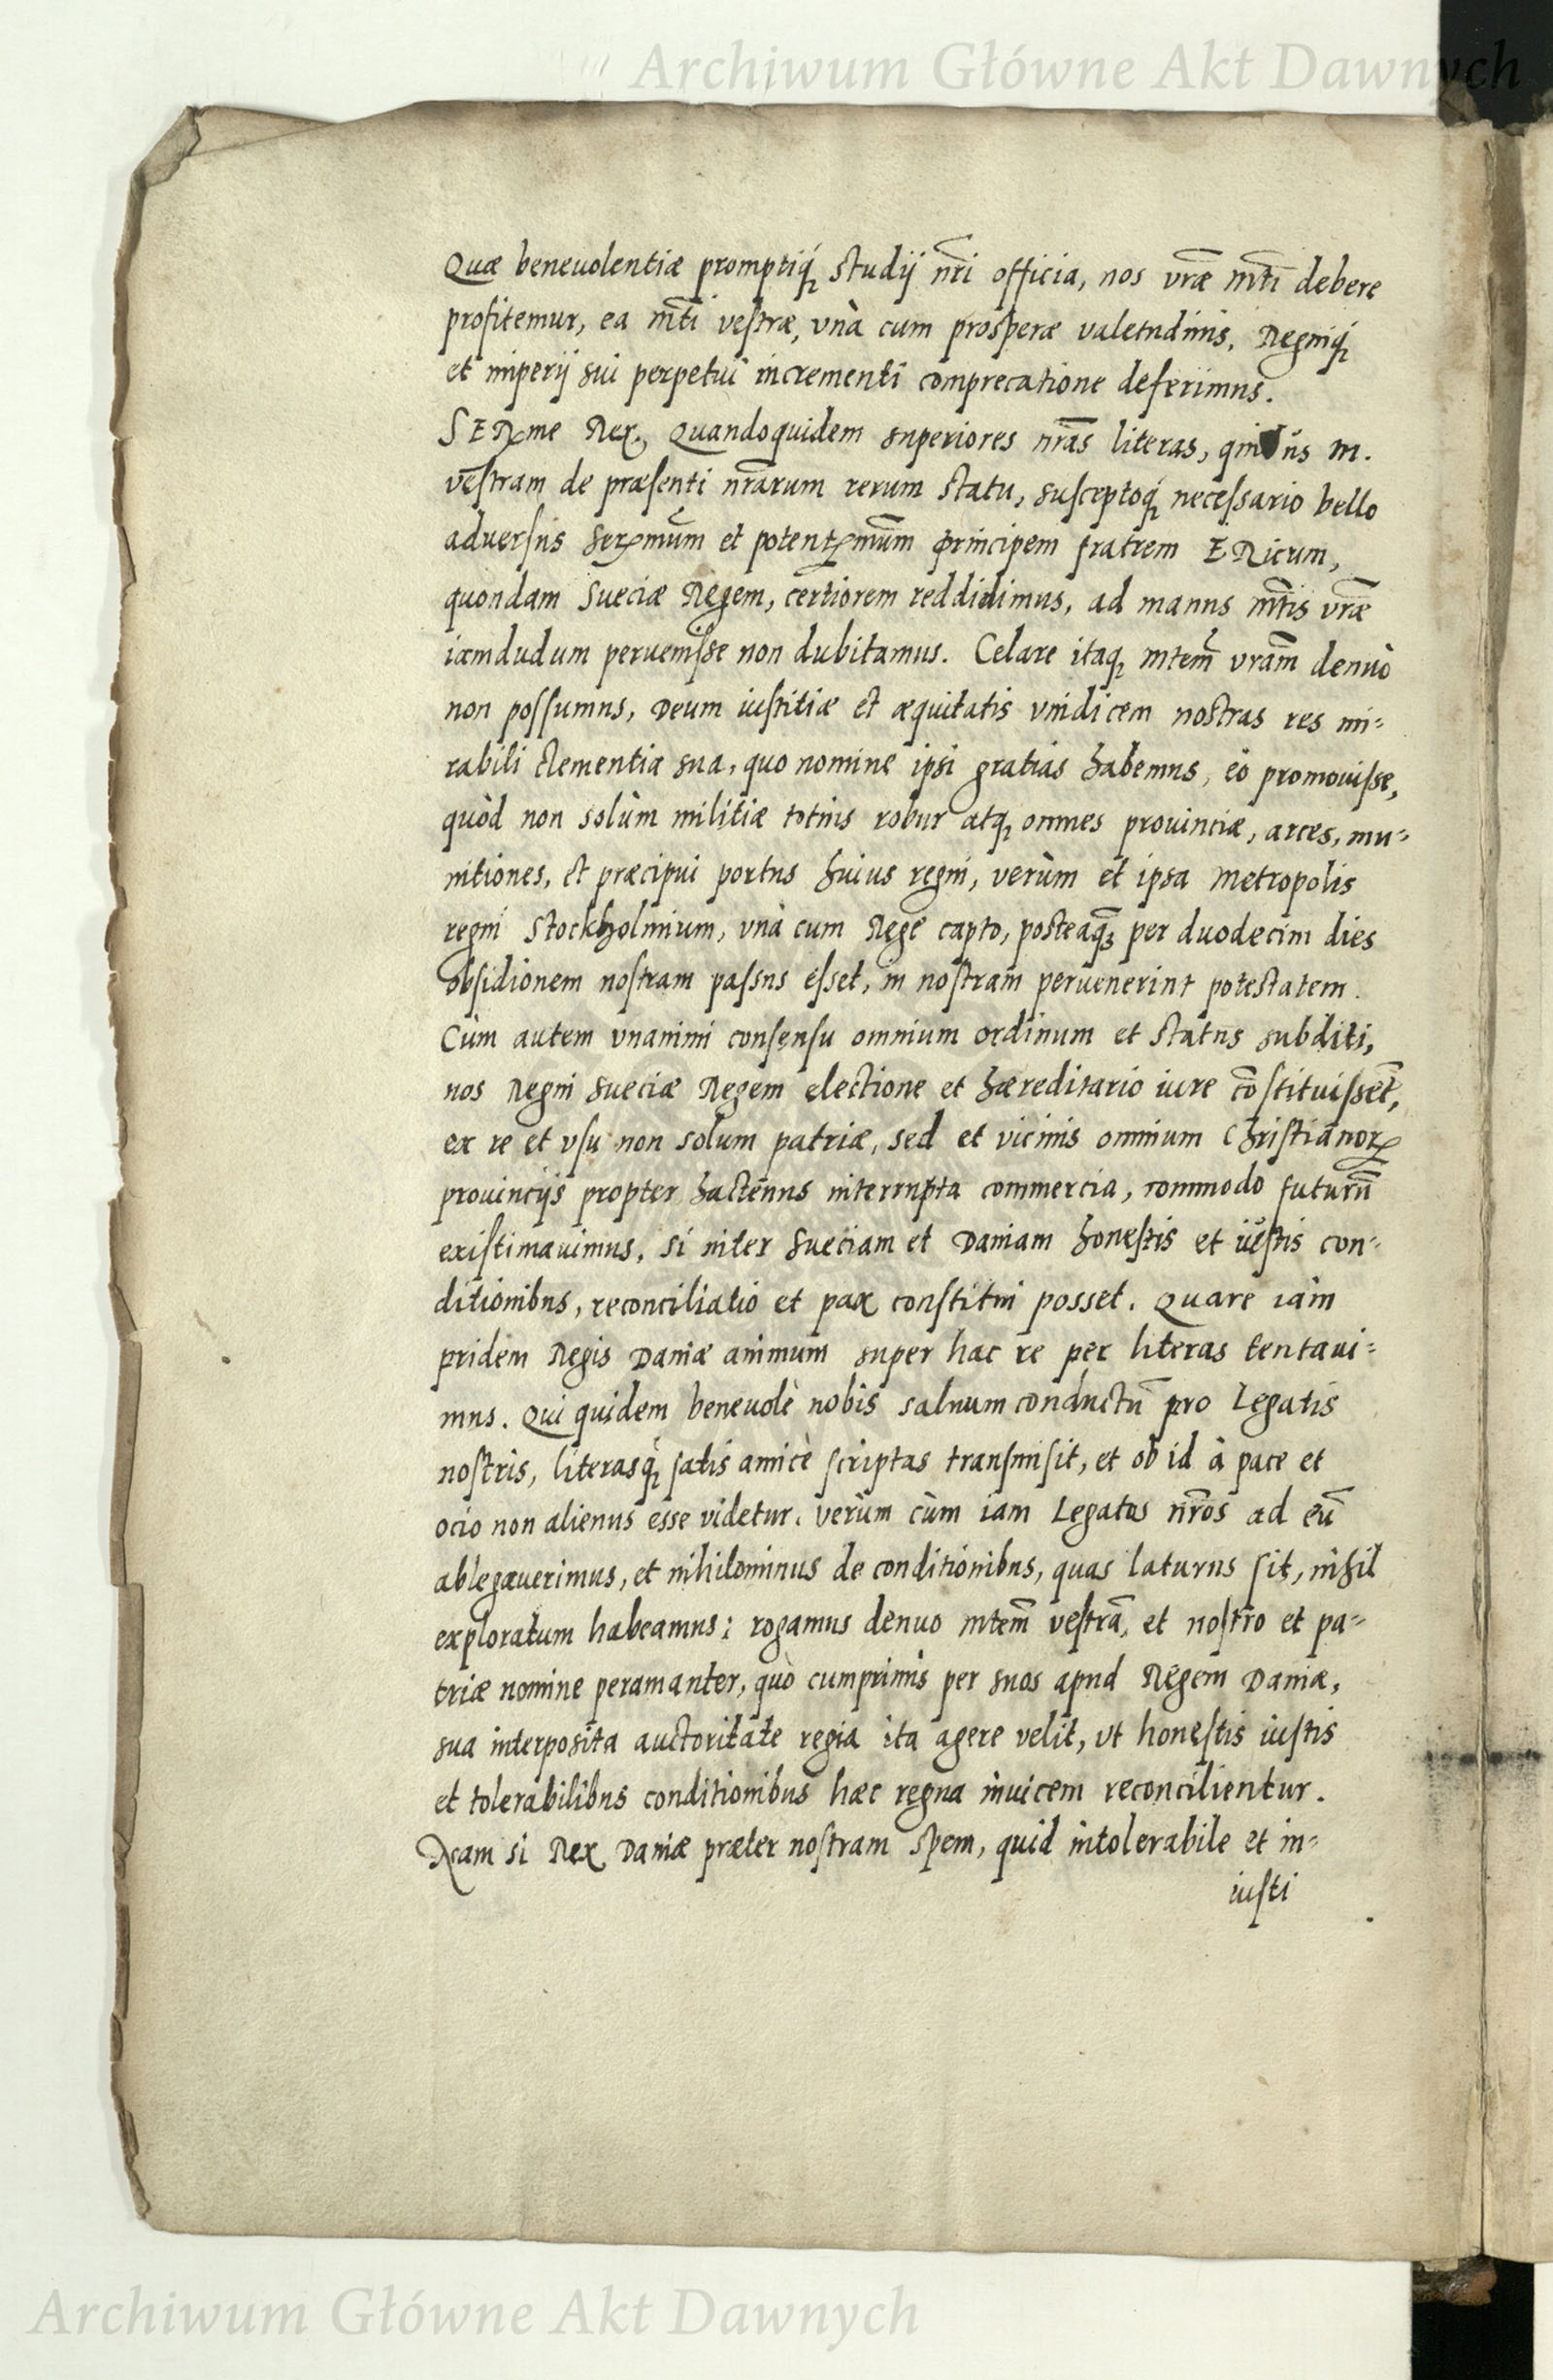 Archiwum Główne Akt Dawnych
Quæ beneuolentiæ promptiq́ꝫ studij nr̃i officia, nos vræ̃ mt̃i debere
profitemur, ea mt̃i vestræ, vnà cum prosperæ valetudinis, Regniq́ꝫ
et imperij sui perpetui incrementi comprecatione deferimus.
SERme Rex, Quandoquidem superiores nr̃as literas, quibus m.
vestram de præsenti nr̃arum rerum statu, susceptoq́ꝫ necessario bello
aduersus serm̃um et potentm̃um principem fratrem ERicum,
quondam Sueciæ Regem, certiorem reddidimus, ad manus mt̃is vræ̃
iamdudum peruenisse non dubitamus. Celare itaqꝫ mtem̃ vram̃ denuò
non possumus, Deum iustitiæ et æquitatis vindicem nostras res mi-
rabili clementia sua, quo nomine ipsi gratias habemus, eò promouisse,
quòd non solùm militiæ totius robur atqꝫ omnes prouinciæ, arces, mu-
nitiones, et præcipui portus huius regni, verùm et ipsa Metropolis
regni Stockholmium, vnà cum Rege capto, posteaq̃ꝫ per duodecim dies
obsidionem nostram passus esset, in nostram peruenerint potestatem.
Cùm autem vnanimi consensu omnium ordinum et status subditi,
nos Regni Sueciæ Regem electione et hæreditario iure cõstituissẽt,
ex re et vsu non solum patriæ, sed et vicinis omnium Christianorꝝ
prouincijs propter hactenus interrupta commercia, commodo futurũ
existimauimus, si inter Sueciam et Daniam honestis et iustis con-
ditionibus, reconciliatio et pax constitui posset. Quare iam
pridem Regis Daniæ animum super hac re per literas tentaui-
mus. Qui quidem beneuolè nobis saluum conductũ pro Legatis
nostris, literasq́ꝫ satis amicè scriptas transmisit, et ob id à pace et
ocio non alienus esse videtur. Verùm cùm iam Legatos nr̃os ad eũ
ablegauerimus, et nihilominus de conditionibus, quas laturus sit, nihil
exploratum habeamus: rogamus denuo mtem̃ vestrã, et nostro et pa-
triæ nomine peramanter, quò cumprimis per suos apud Regem Daniæ,
sua interposita auctoritate regia ita agere velit, vt honestis iustis
et tolerabilibus conditionibus hæc regna inuicem reconcilientur.
Nam si Rex Daniæ præter nostram spem, quid intolerabile et in-
iusti
Archiwum Główne Akt Dawnych